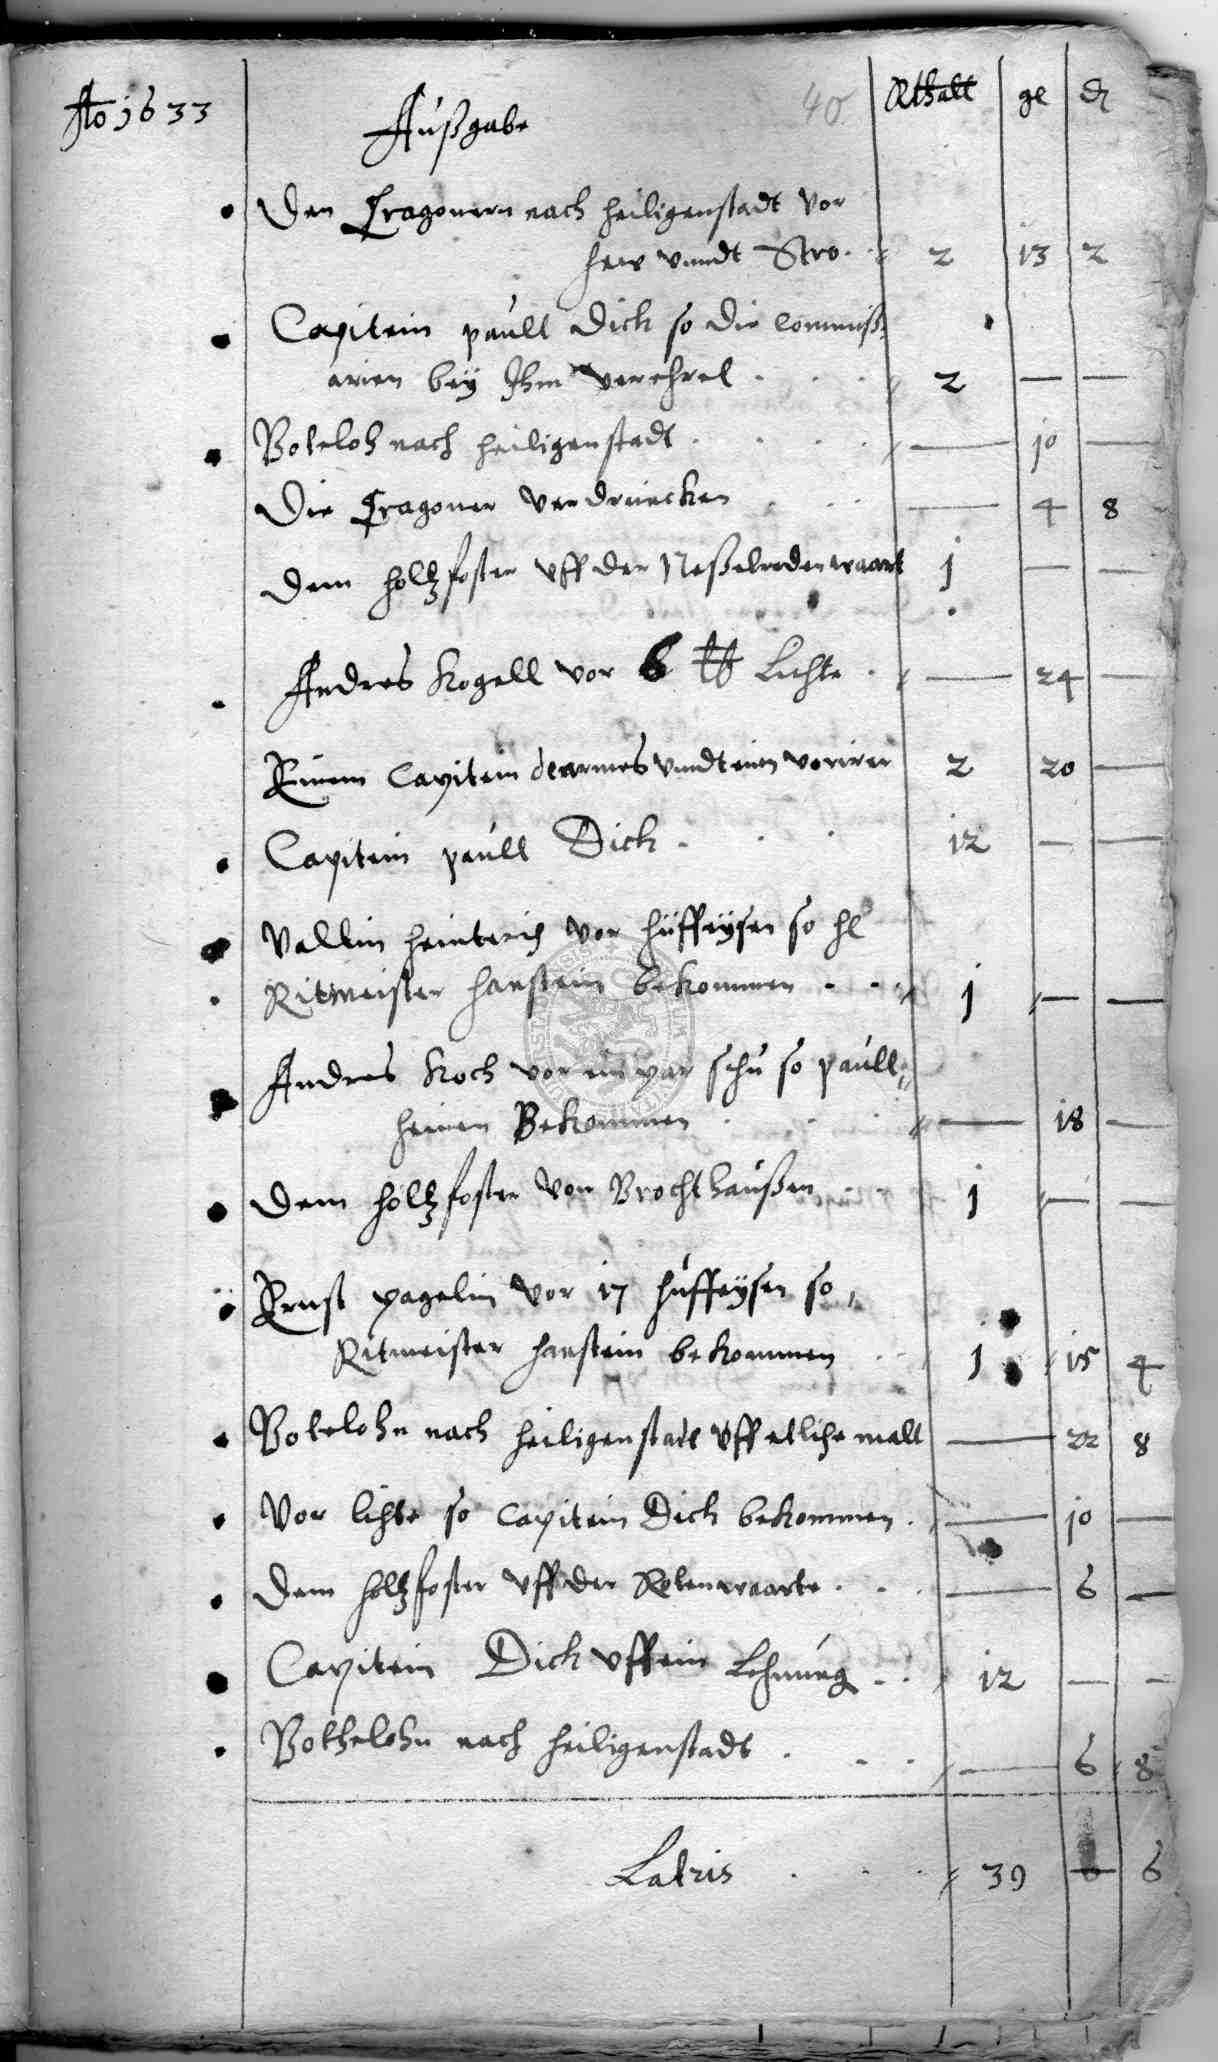 Ao 1633
Außgabe 40 Rthall gl ₰
Den Tragonern nach heiligenstadt vor
hew vnndt Stro. 2 13 2
Capitein paull Dick so die commiß-
arien bey Ihm verehrel 2 — —
Boteloh nach heiligenstadt — 10 —
Die Tragoner verdruncken — 4 8
dem holtzfoster vff der Neßelreden waart 1 — —
Andres Kogell vor 6 ℔ Lichte — 24 —
Einem Capitein dearmes vnndt einen 2 20 —
Capitein paull Dick 12 — —
Valltin heinterich vor hüffeysen so hl
Ritmeister hanstein bekommen 1 — —
Andres Koch vor ein par schu so paull
heinen Bekommen — 18 —
dem holtzfoster von Brochthaußen 1 — —
Ernst pagelin vor 17 huffeysen so
Ritmeister hanstein bekommen 1 15 4
Botelohn nach heiligenstadt vff etliche mall — 22 8
Vor lichte so Capitein Dick bekommen — 10 —
dem holtzfoster vff der Rotenwaarte — 6 —
Capitein Dick vff ein Lehnung 12 — —
Bothelohn nach heiligenstadt — 6 8
Latris 39 6